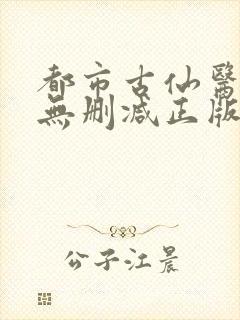 都市古仙醫
無删减正版
公子江晨